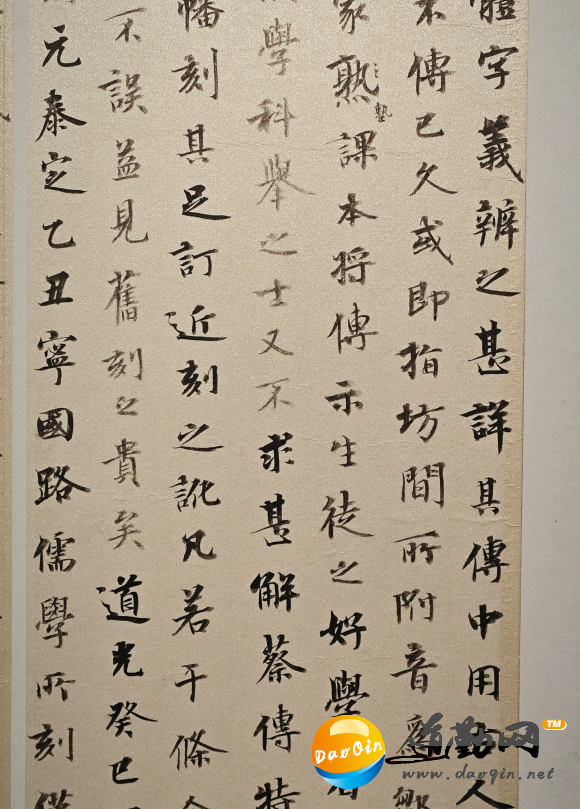 體字義辨之甚詳其傳中用
不傳已久或即指坊間所附音
家熟塾課本将傳示生徒之好學者
學科舉之士又不求甚解蔡傳特
幡刻其足訂近刻之訛凡若干條
不誤益見舊刻之貴矣道光癸巳
元泰定乙丑寧國路儒學所刻
DaoQin
道勤网
TM
www.daoqin.net